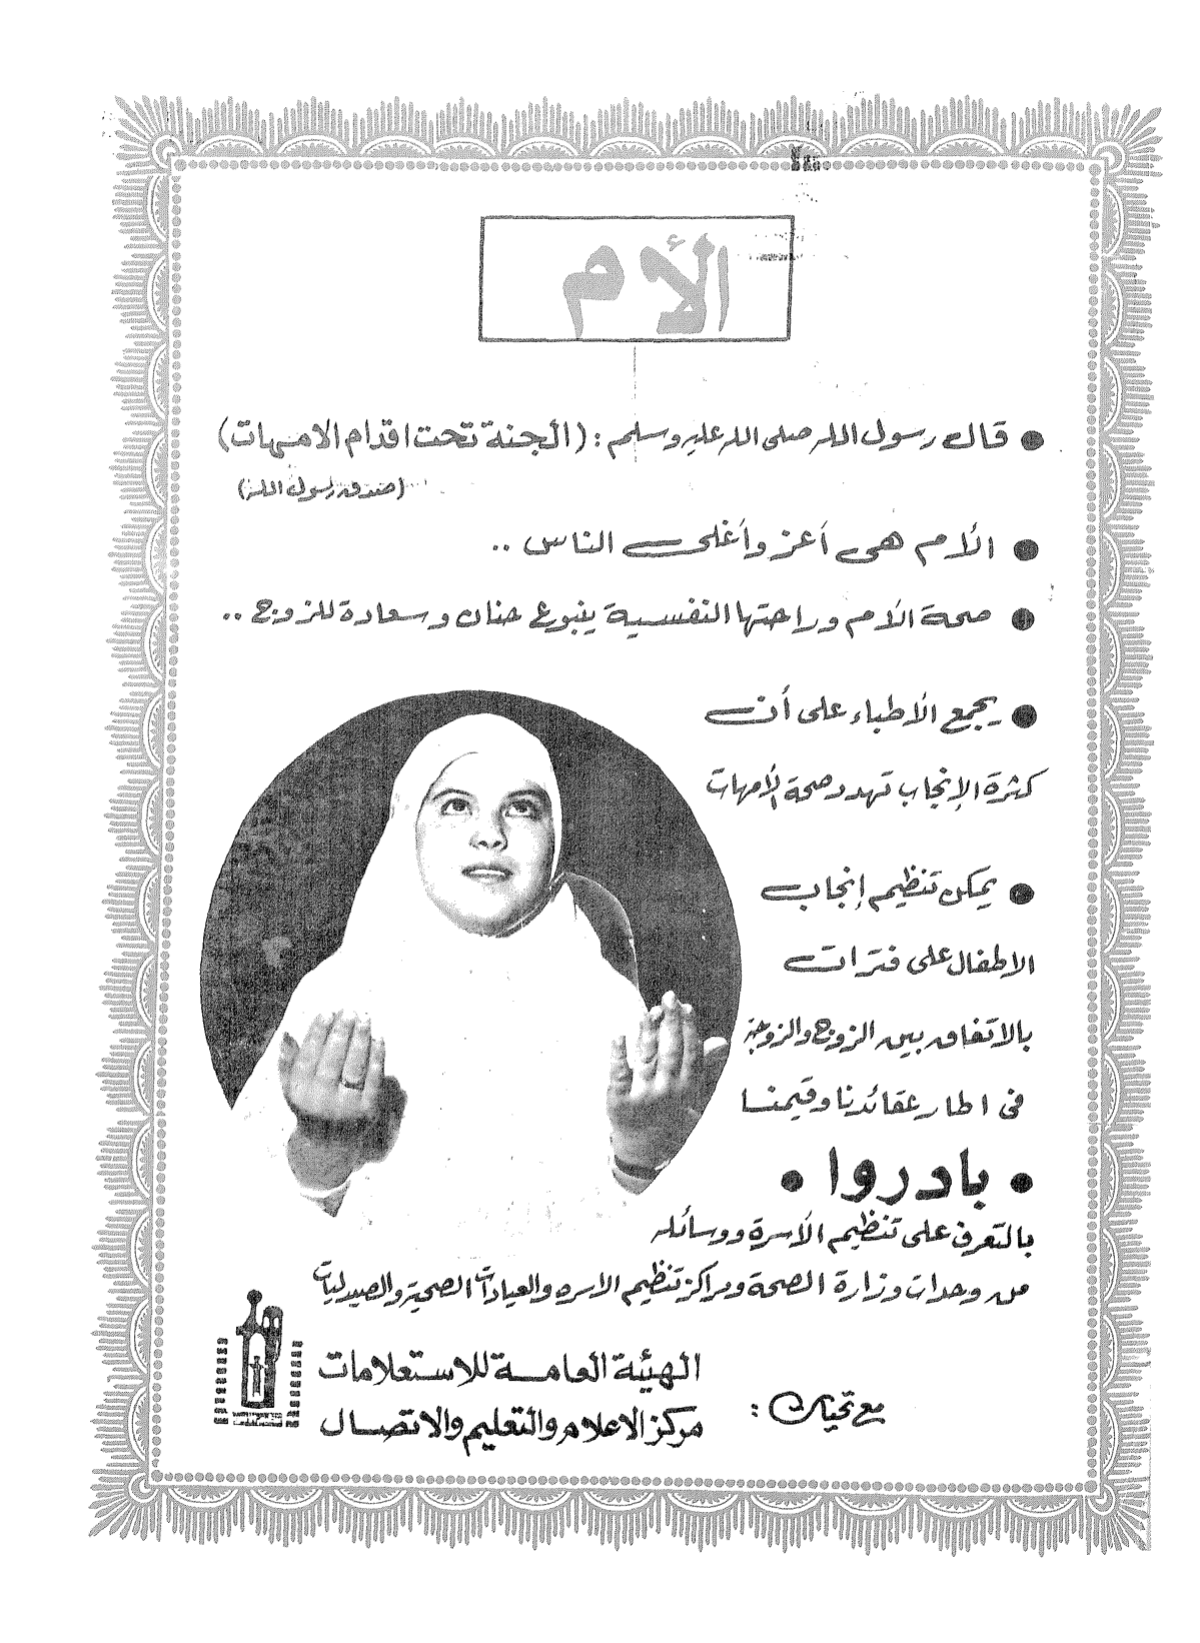 الأم
● قال رسول الله صلى الله عليه وسلم : (الجنة تحت اقدام الامهات)
(صدق رسول الله)
● الأم هى أعز وأغلى الناس ..
● صحة الأم وراحتها النفسية ينبوع حنان وسعادة للزوج ..
● يجمع الأطباء على أن
كثرة الإنجاب تهدد صحة الأمهات
● يمكن تنظيم إنجاب
الاطفال على فترات
بالاتفاق بين الزوج والزوجة
فى اطار عقائدنا وقيمنا
• بادروا •
بالتعرف على تنظيم الأسرة ووسائله
من وحدات وزارة الصحة ومراكز تنظيم الاسره والعيادات الصحية والصيدليات
مع تحيات :
الهيئة العامة للاستعلامات
مركز الاعلام والتعليم والاتصال